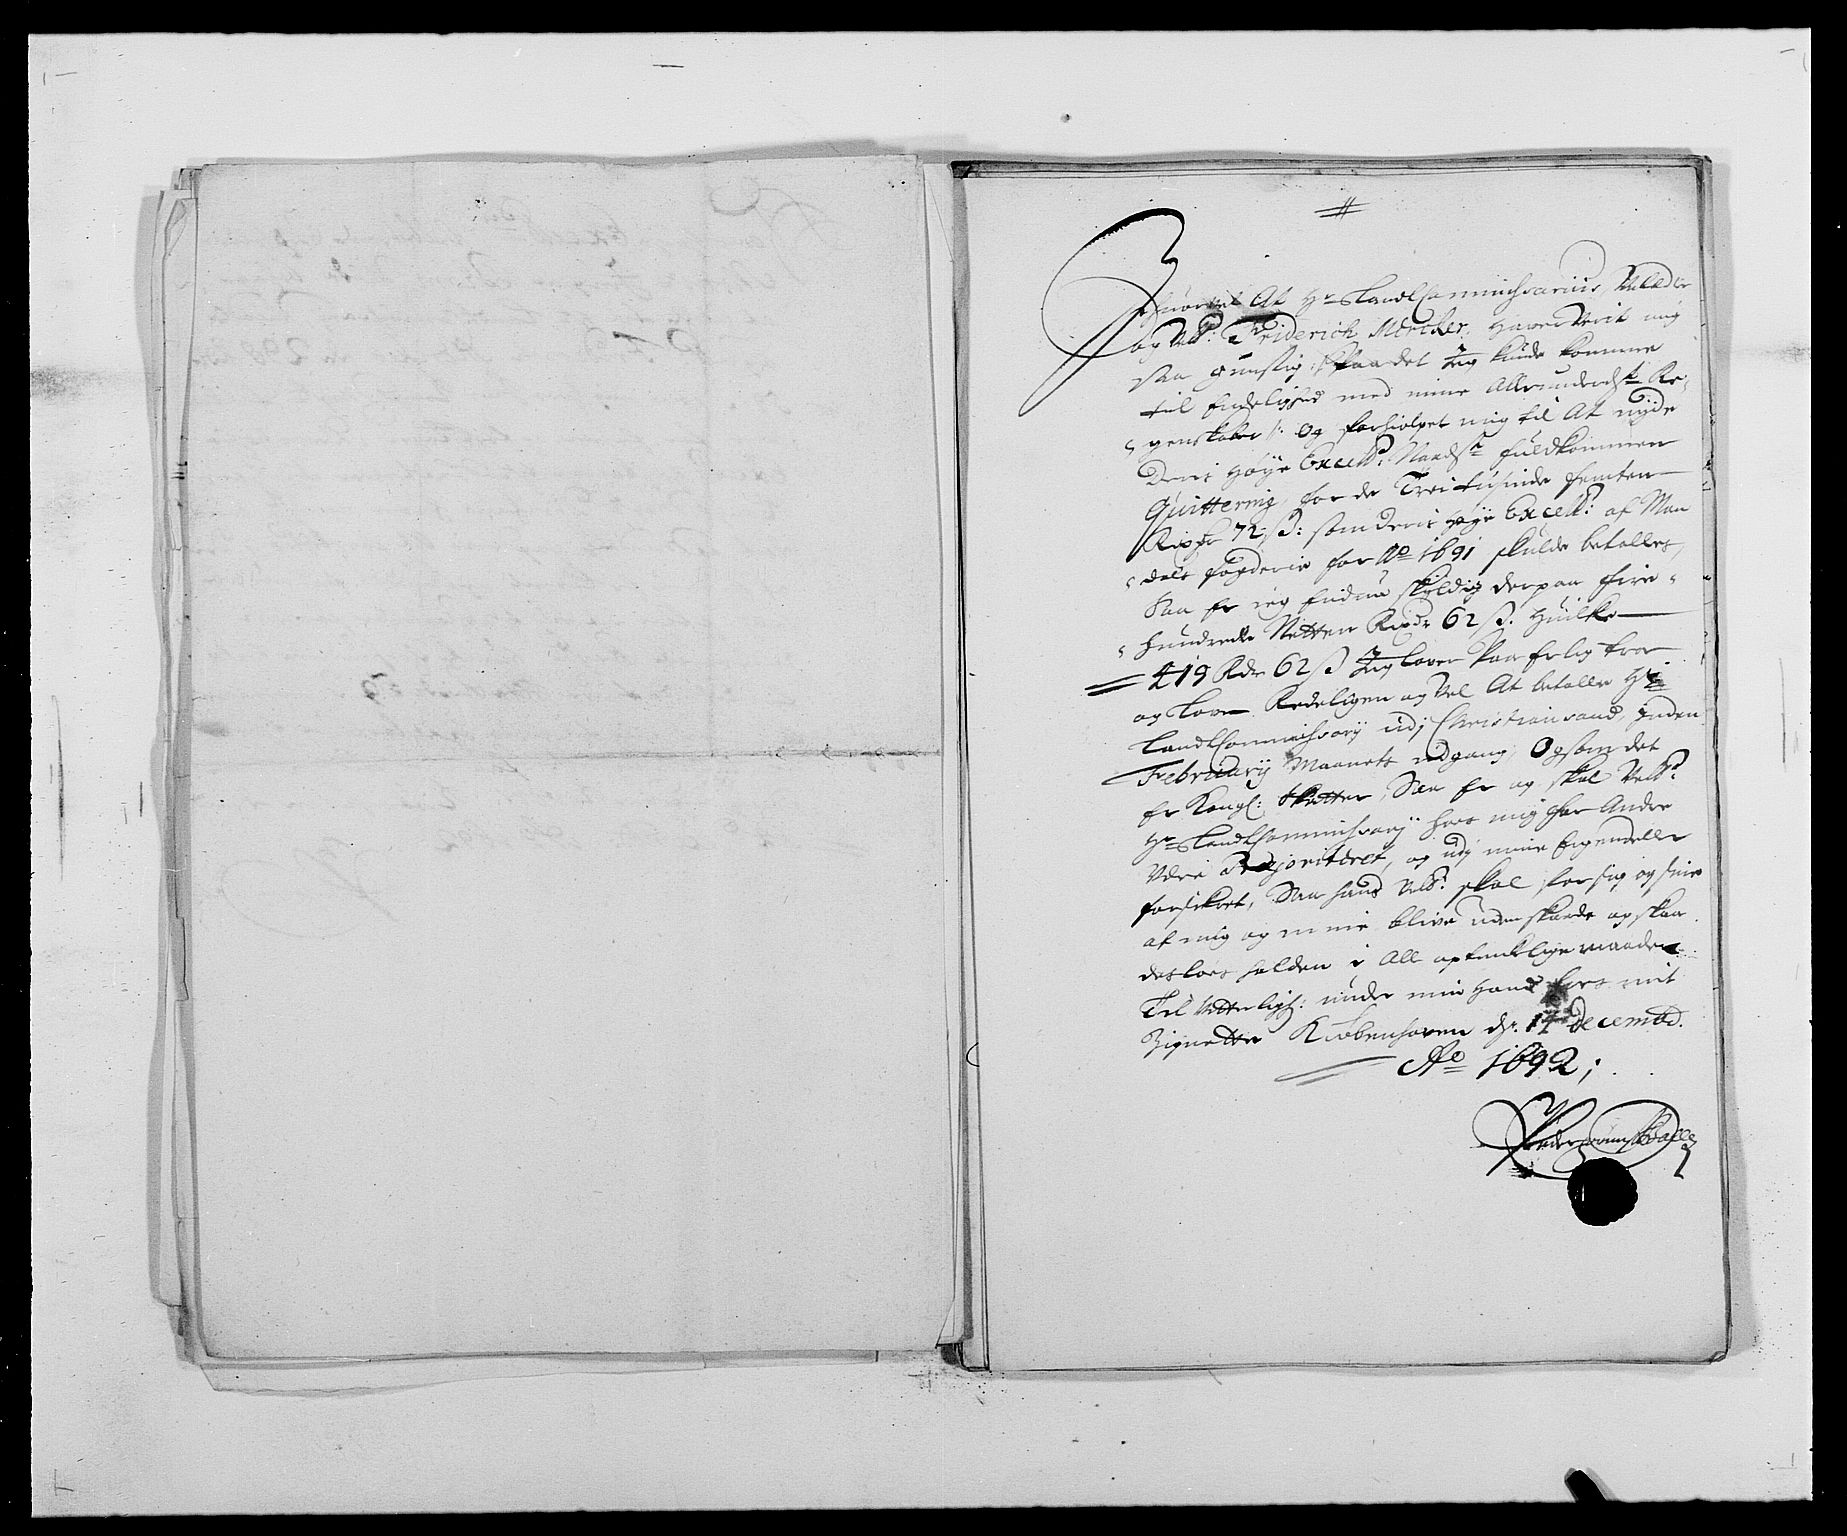 Jhuorvel At Hr LandCommihsarius, Velædle
og Velb: Friderich Mercker, Haver verit mig
saa gunstig, /: Paa det Jeg kunde komme
til Endelighed med mine Allerunderdste Re¬
genskaber :/ og forhiolpet mig til At nyde
Deris Høye Excells: Naadste fuldkommen
Quittering, for de Trei tusinde femten
Rixdr 72 ß: som deris Høye Excell: af Man
dals fogderie for Ao 1691 skulde betalles,
Saa Er ieg Endnu skyldig derpaa fire¬
hundrede Netten Rixdr 62 ß: Huilke
419 Rdr 62 ß Jeg lover Paa Erlig troe
og Love Redeligen og vel At betalle Hr
LandCommihsary udj Christiansand, inden
February Maanets udgang, Og som det
Er Kongl: Skatter, Saa Er og skal Velb:
Hr LandCommihsary hos mig for Andre
Vere Prejoriteret, og udj mine Eigendeller
forsikret, Saa hans Velb: skal for sig og sine
af mig og mine blive uden skade og skaa
desløes holden i All optenkelige maader
Til Vitterligh: under min Haand hos mit
Zignette Kiøbenhaven ds: 14 Decembr.
Ao 1692;